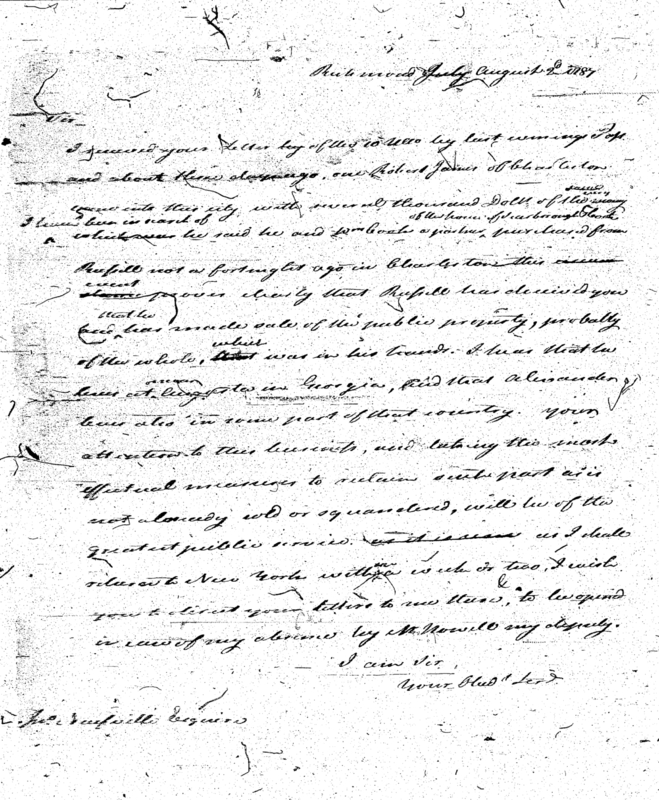 Richmond July August 2d 1787
Sir
I received your Letter by of the 10 Ulto by last evenings Post
and about three days ago, one Robert James of Charleston
came into this city, with several thousand Dolls of the same
I have been in search of of the house of Scarbrough & Cooke
which was he said he and from purchased from
Russell not a fortnight ago in Charleston this
event proves clearly that Russell has deceived you
that he
and has made sale of the public property, probably
which
of the whole, that was in his hands. I hear that he
lives at Augusta in Georgia, and that Alexander
lives also in some part of that country your
attention to this business, and taking the most
effectual measures to retain such part as is
not already sold or squandered, will be of the
greatest public service as it is as I shall
return to New York within a week or two, I wish
you to direct your letters to me there, & to be opened
in case of my absence by Mr. Nowell my deputy.
I am Sir,
Your Obedt Servt
Jno Neufville Esquire